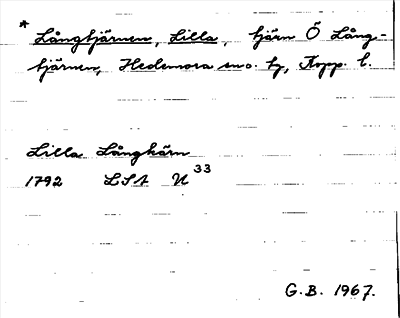 * Långtjärnen, Lilla, tjärn Ö Lång-
tjärnen, Hedemora sno. hg, Kopp. l.
Lilla Långkärn
1792 LSA U 33
G.B. 1967.